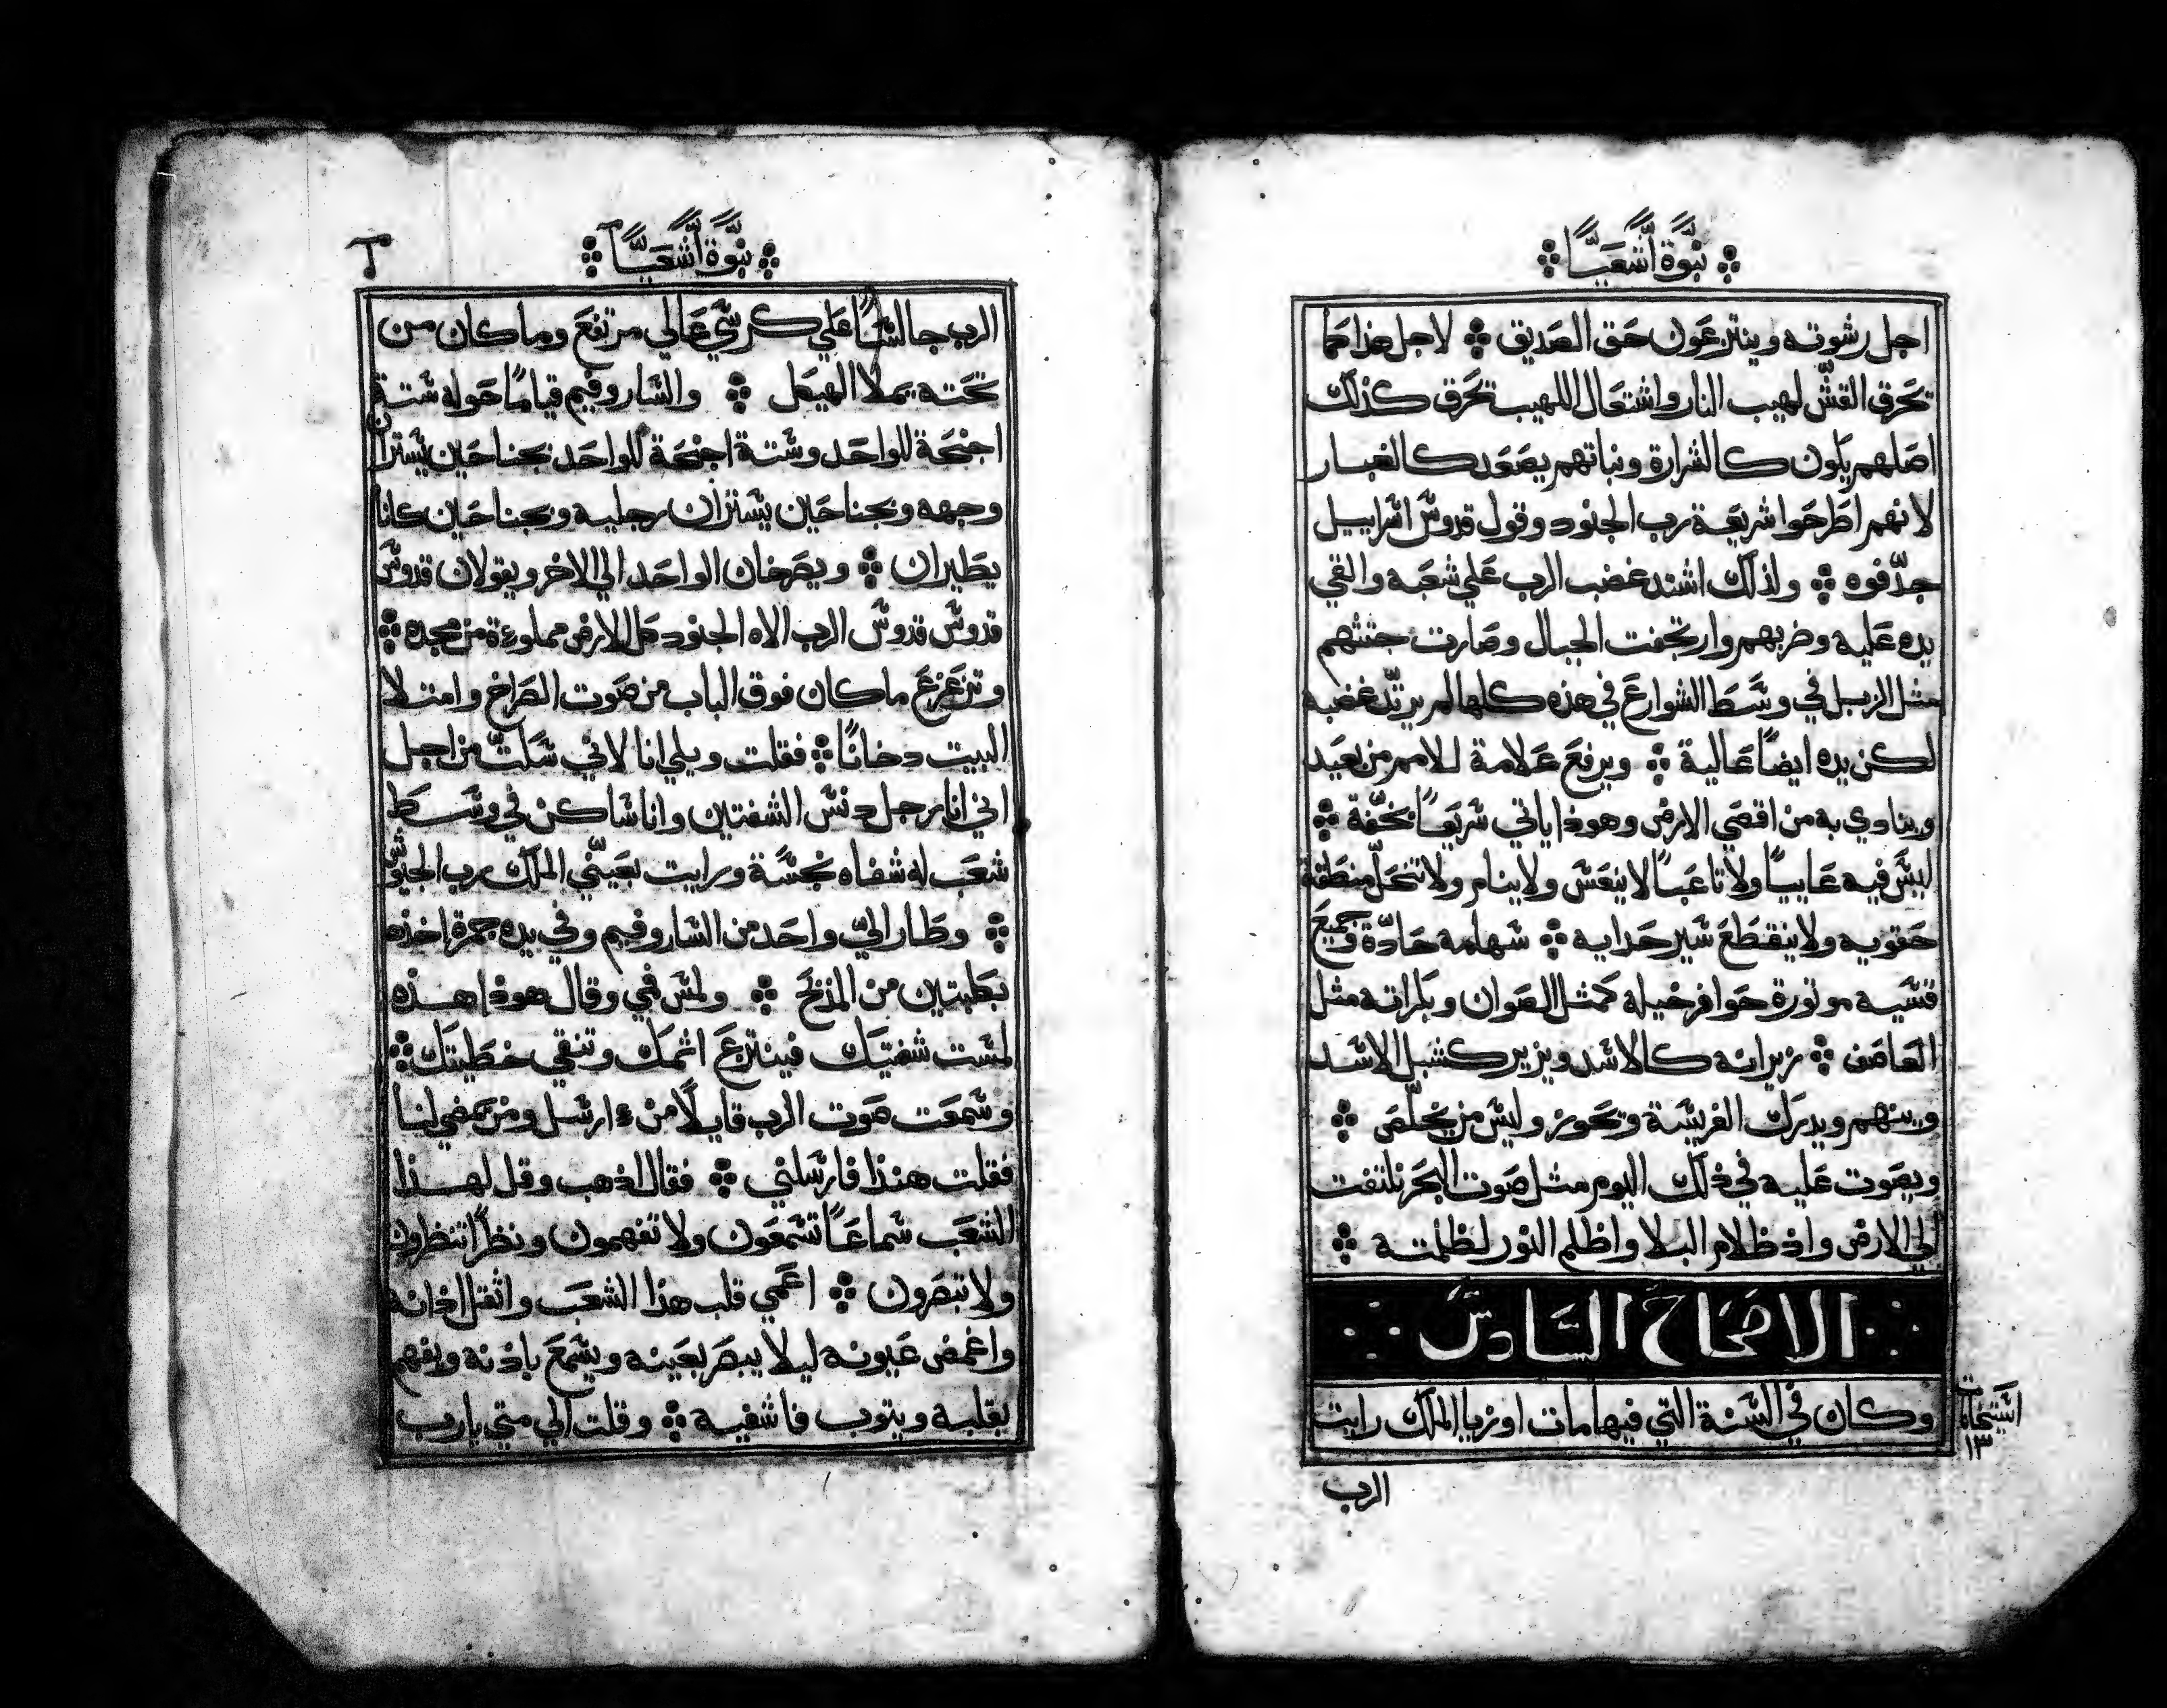 نبوّة أشعيًا
اجل رشوته وينتزعون حق الصديق ܀ لاجل هذا كما
تحرق القش لهيب النار واشتعال اللهيب تحرق كذلك
اصلهم يكون كالشرارة ونباتهم يصعد كالغبار
لانهم اطرحوا شريعة رب الجنود وقول قدوس اسراييل
جدّفوه ܀ ولذلك اشتد غضب الرب علي شعبه والقي
يده عليه وضربهم وارتجفت الجبال وصارت جثثهم
مثل الزبل في وسط الشوارع في هذه كلها لم يرتدّ غضبه
لكن يده ايضًا عالية ܀ ويرفع علامة للامم من بعيد
وينادي به من اقصي الارض وهوذا ياتي سريعًا بخفّة ܀
ليس فيه عاييًا ولا تاعبًا لا ينعس ولا ينام ولا تنحلّ منطقة
حقويه ولا ينقطع سير حدايه ܀ سهامه حادّة وجميع
قسيه موتورة حوافر خيله كمثل الصوان وبكراته مثل
العاصف ܀ زيرانه كالاسد ويزير كشبل الاسد
وينهم ويدرك الفريسة وتحوز وليس من يخلّص ܀
ويصوت عليه في ذلك اليوم مثل صوت البحر نلتفت
الي الارض واذ ظلام البلا واظلم النور لظلمته ܀
الاصحاح السادس
وكان في السنة التي فيها مات اوزيا الملك رايت
١٣
الرب
نبوّة أشعيًا
الرب جالسًا علي كرسي عالي مرتفع وما كان من
تحته يملا الهيكل ܀ والساروفيم قيامًا حوله ستة
اجنحة للواحد وستة اجنحة للواحد بجناحين يستران
وجهه وبجناحين يستران رجليه وبجناحين كانا
يطيران ܀ ويصرخان الواحد الي الاخر ويقولان قدوس
قدوس قدوس الرب الاه الجنود كل الارض مملوءة من مجده ܀
وتزعزع ما كان فوق الباب من صوت الصراخ وامتلا
البيت دخانًا ܀ فقلت ويلي انا لاني سكتّ من اجل
اني انا رجل دنس الشفتين وانا ساكن في وسط
شعب له شفاه نجسة ورايت بعينّي الملك رب الجيوش
܀ وطار اليّ واحد من الساروفيم وفي يده جمرة اخذه
بكلبتين من المذبح ܀ ولمس فمي وقال هوذا هذه
لمست شفتيك فينتزع اثمك وتنقي خطيتك ܀
وسمعت صوت الرب قايلًا من ءارسل ومن يمضي لنا
فقلت هنذا فارسلني ܀ فقال اذهب وقل لهذا
الشعب سماعًا تسمعون ولا تفهمون ونظرًا تنظرون
ولا تبصرون ܀ اعمي قلب هذا الشعب واثقل اذانه
واغمض عيونه ليلا يبصر بعينه ويسمع باذنه ويفهم
بقلبه ويتوب فاشفيه ܀ وقلت الي متي يا رب